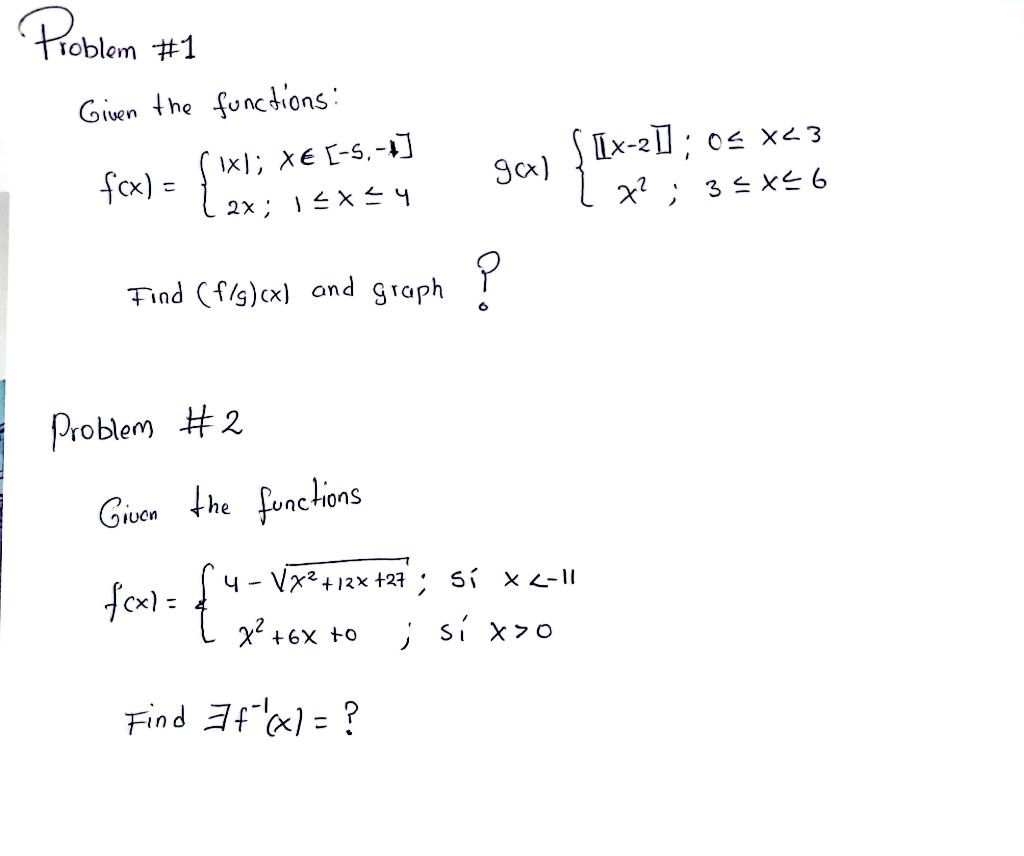 Problem #1
Given the functions:
f(x) = { |x|; x ∈ [-5,-1]
2x; 1 ≤ x ≤ 4
g(x) { ⟦x-2⟧; 0 ≤ x < 3
x²; 3 ≤ x ≤ 6
Find (f/g)(x) and graph ?
Problem #2
Given the functions
f(x) = { 4 - √x²+12x+27; sí x <-11
x²+6x+0 ; sí x>0
Find ∃f⁻¹(x) = ?